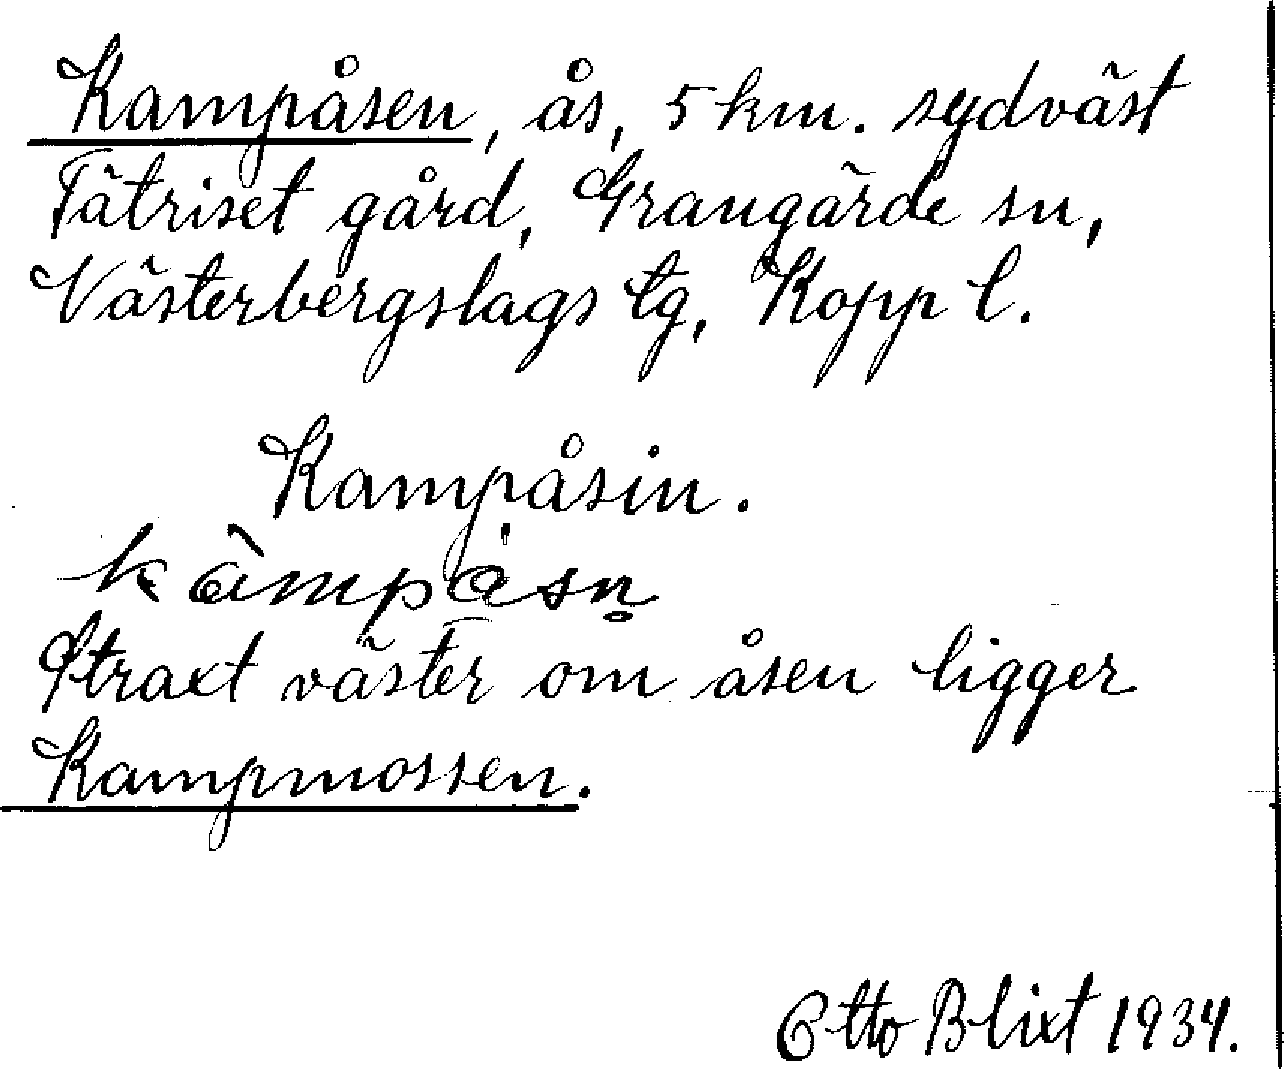 Kampåsen, ås, 5 km. sydväst
Tätriset gård, Grangärde sn,
Västerbergslags tg, Kopp l.
Kampåsin.
kàmpåsn̥
Straxt väster om åsen ligger
Kampmossen.
Otto Blixt 1934.